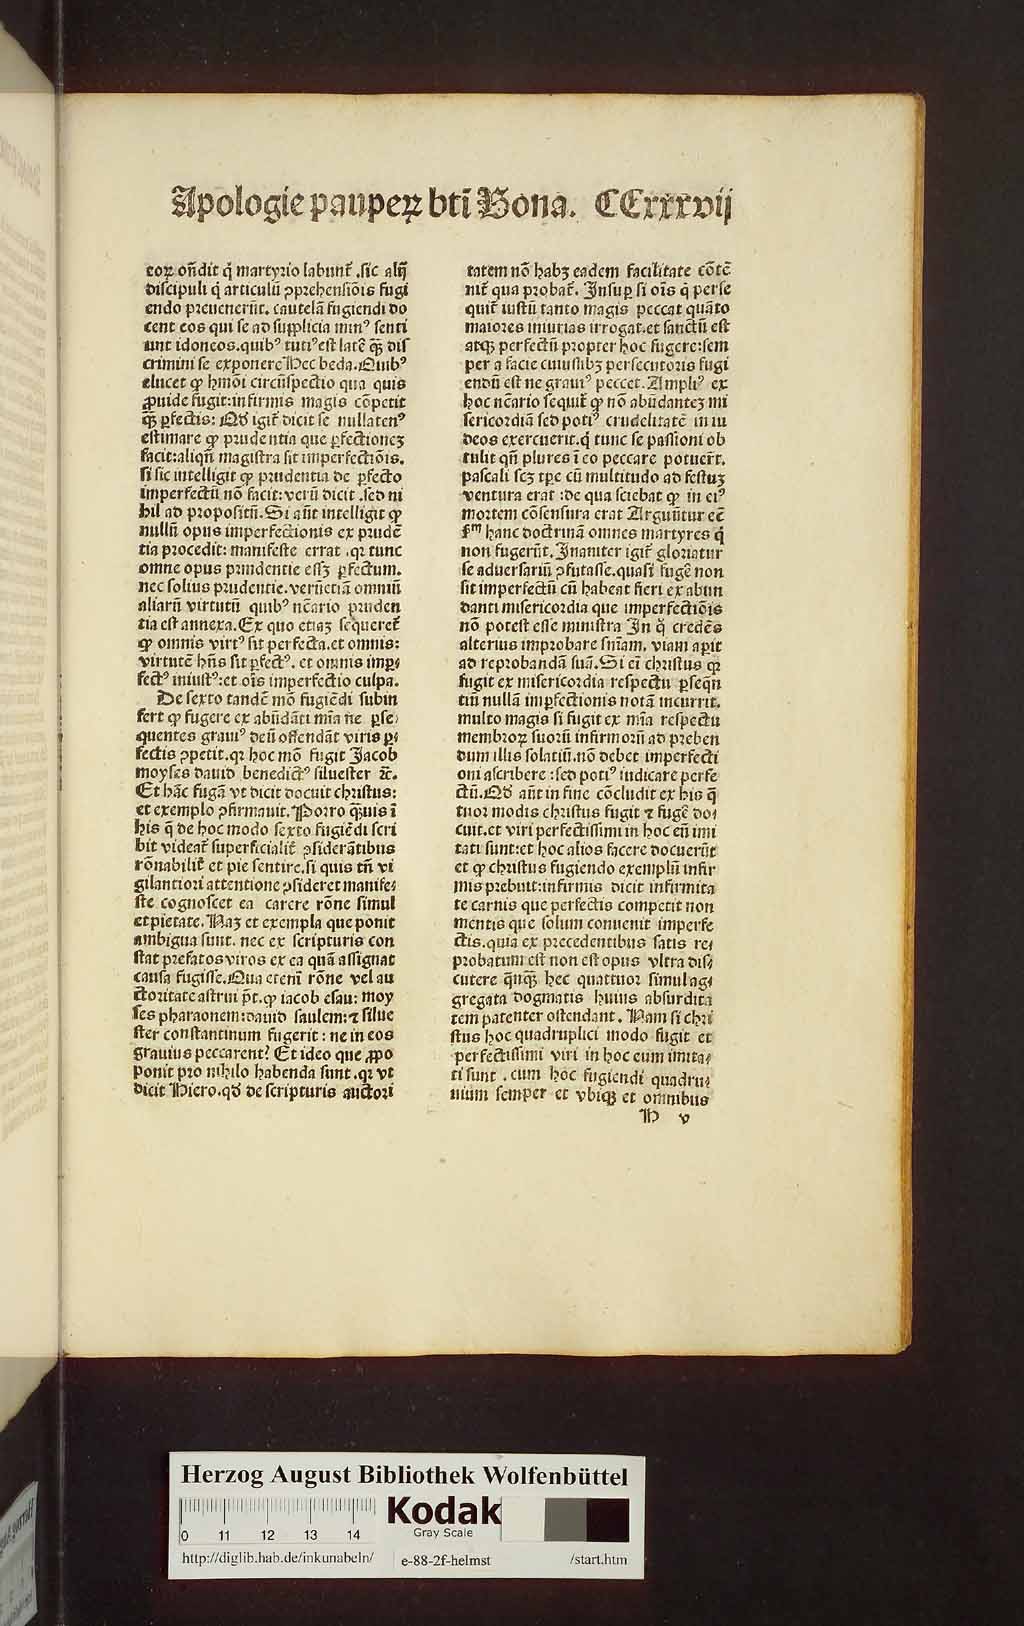 Apologie pauperꝝ bti̅ Bona. CCxxxvij
torꝝ on̅dit q̇ martyrio labunt̃ .sic alij̅
discipuli q̇ articulu̅ ꝯprehensio̅is fugi
endo preuenerũt. cautela̅ fugiendi do
cent eos qui se ad supplicia minꝰ senti
unt idoneos.quibꝰ tutiꝰ est late̅ q̅ꝫ dis
crimini se exponere Hec beda.Quibꝰ
elucet ꝙ hm̅oi circu̅spectio qua quis
ꝓuide fugit:infirmis magis co̅petit
q̅ꝫ ꝑfectis: Qd̅ igit̃ dicit se nullatenꝰ
estimare ꝙ prudentia que ꝑfectioneꝫ
facit:aliqn̅ magistra sit imperfectio̅is.
si sic intelligit ꝙ prudentia de ꝑfecto
imperfectu̅ no̅ facit: veru̅ dicit .sed ni
hil ad propositu̅.Si au̅t intelligit ꝙ
nullu̅ opus imperfectionis ex prude̅
tia procedit: manifeste errat .qꝛ tunc
omne opus prudentie esſꝫ ꝑfectum.
nec solius prudentie.veru̅etia̅ omniu̅
aliaru̅ virtutu̅ quibꝰ ne̅cario pruden
tia est annexa.Ex quo etiaꝫ sequeret̃
ꝙ omnis virtꝰ sit perfecta.et omnis:
virtute̅ hn̅s sit ꝑfectꝰ. et omnis imꝑ⸗
fectꝰ iniustꝰ:et oi̅s imperfectio culpa.
De sexto tande̅ mo̅ fugie̅di subin
fert ꝙ fugere ex abu̅da̅ti mi̅a ne ꝑse⸗
quentes grauiꝰ deu̅ offenda̅t viris ꝑ⸗
fectis ꝯpetit.qꝛ hoc mo̅ fugit Jacob
moyses dauid benedictꝰ siluester ⁊c̅.
Et ha̅c fuga̅ vt dicit docuit christus:
et exemplo ꝯfirmauit.Porro q̅ꝫuis i̅
his q̅ de hoc modo sexto fugie̅di scri
bit videat̃ superficialit̃ ꝯsidera̅tibus
ro̅nabilit̃ et pie sentire.si quis tn̅ vi
gilantiori attentione ꝯsideret manife⸗
ste cognoscet ea carere ro̅ne simul
et pietate.Naꝫ et exempla que ponit
ambigua sunt. nec ex scripturis con
stat prefatos viros ex ea qua̅ assignat
causa fugisse.Qua eteni̅ ro̅ne vel au
ctoritate astrui p̅t.ꝙ iacob esau: moy
ses pharaonem:dauid saulem:⁊ silue
ster constantinum fugerit: ne in eos
grauius peccarent? Et ideo que ꝓpo
ponit pro nihilo habenda sunt .qꝛ vt
dicit Hiero.qd̅ de scripturis auctori
tatem no̅ habꝫ eadem facilitate co̅te̅
nit̃ qua probat̃. Insuꝑ si oi̅s q̇ per se
quit̃ iustu̅ tanto magis peccat qua̅to
maiores iniurias irrogat.et sanctu̅ est
atqꝫ perfectu̅ propter hoc fugere:sem
per a facie cuiuslibꝫ persecutoris fugi
endu̅ est ne grauiꝰ peccet. Ampliꝰ ex
hoc ne̅cario sequit̃ ꝙ no̅ abu̅danteꝫ mi
sericordia̅ sed potiꝰ crudelitate̅ in iu
deos exercuerit.q̇ tunc se passioni ob
tulit qn̅ plures i̅ eo peccare potuerũt.
pascali scꝫ tꝑe cu̅ multitudo ad festuꝫ
ventura erat :de qua sciebat ꝙ in eiꝰ
mortem co̅sensura erat Argu̅ntur ec̅
ẜm hanc doctrina̅ omnes martyres q̇
non fugeru̅t. Inaniter igit̃ gloriatur
se aduersariu̅ ꝯfutasse.quasi fuge̅ non
sit imperfectu̅ cu̅ habeat fieri ex abun
danti misericordia que imperfectio̅is
no̅ potest esse ministra In q̇ crede̅s
alterius improbare sn̅iam, viam aꝑit
ad reprobanda̅ sua̅.Si ei̅ christus qꝛ
fugit ex misericordia respectu ꝑseqn̅
tiu̅ nulla̅ imꝑfectionis nota̅ incurrit.
multo magis si fugit ex mi̅a respectu
membroꝝ suoru̅ infirmoru̅ ad preben
dum illis solatiu̅.no̅ debet imperfecti
oni ascribere :sed potiꝰ iudicare perfe
ctu̅.Qd̅ au̅t in fine co̅cludit ex his q̅
tuor modis christus fugit ⁊ fuge̅ do⸗
cuit.et viri perfectissimi in hoc eu̅ imi
tati sunt:et hoc alios facere docueru̅t
et ꝙ christus fugiendo exemplu̅ infir
mis prebuit:infirmis dicit infirmita
te carnis que perfectis competit non
mentis que solum conuenit imperfe
ctis.quia ex precedentibus satis re⸗
probatum est non est opus vltra dis⸗
cutere q̅nqꝫ hec quattuor simul ag⸗
gregata dogmatis huius absurdita
tem patenter ostendant. Nam si chri
stus hoc quadruplici modo fugit et
perfectissimi viri in hoc eum imita⸗
ti sunt . cum hoc fugiendi quadru⸗
uium semper et vbiqꝫ et omnibus
H v
Herzog August Bibliothek Wolfenbüttel
0 11 12 13 14
Kodak
Gray Scale
http://diglib.hab.de/inkunabeln/ e-88-2f-helmst /start.htm